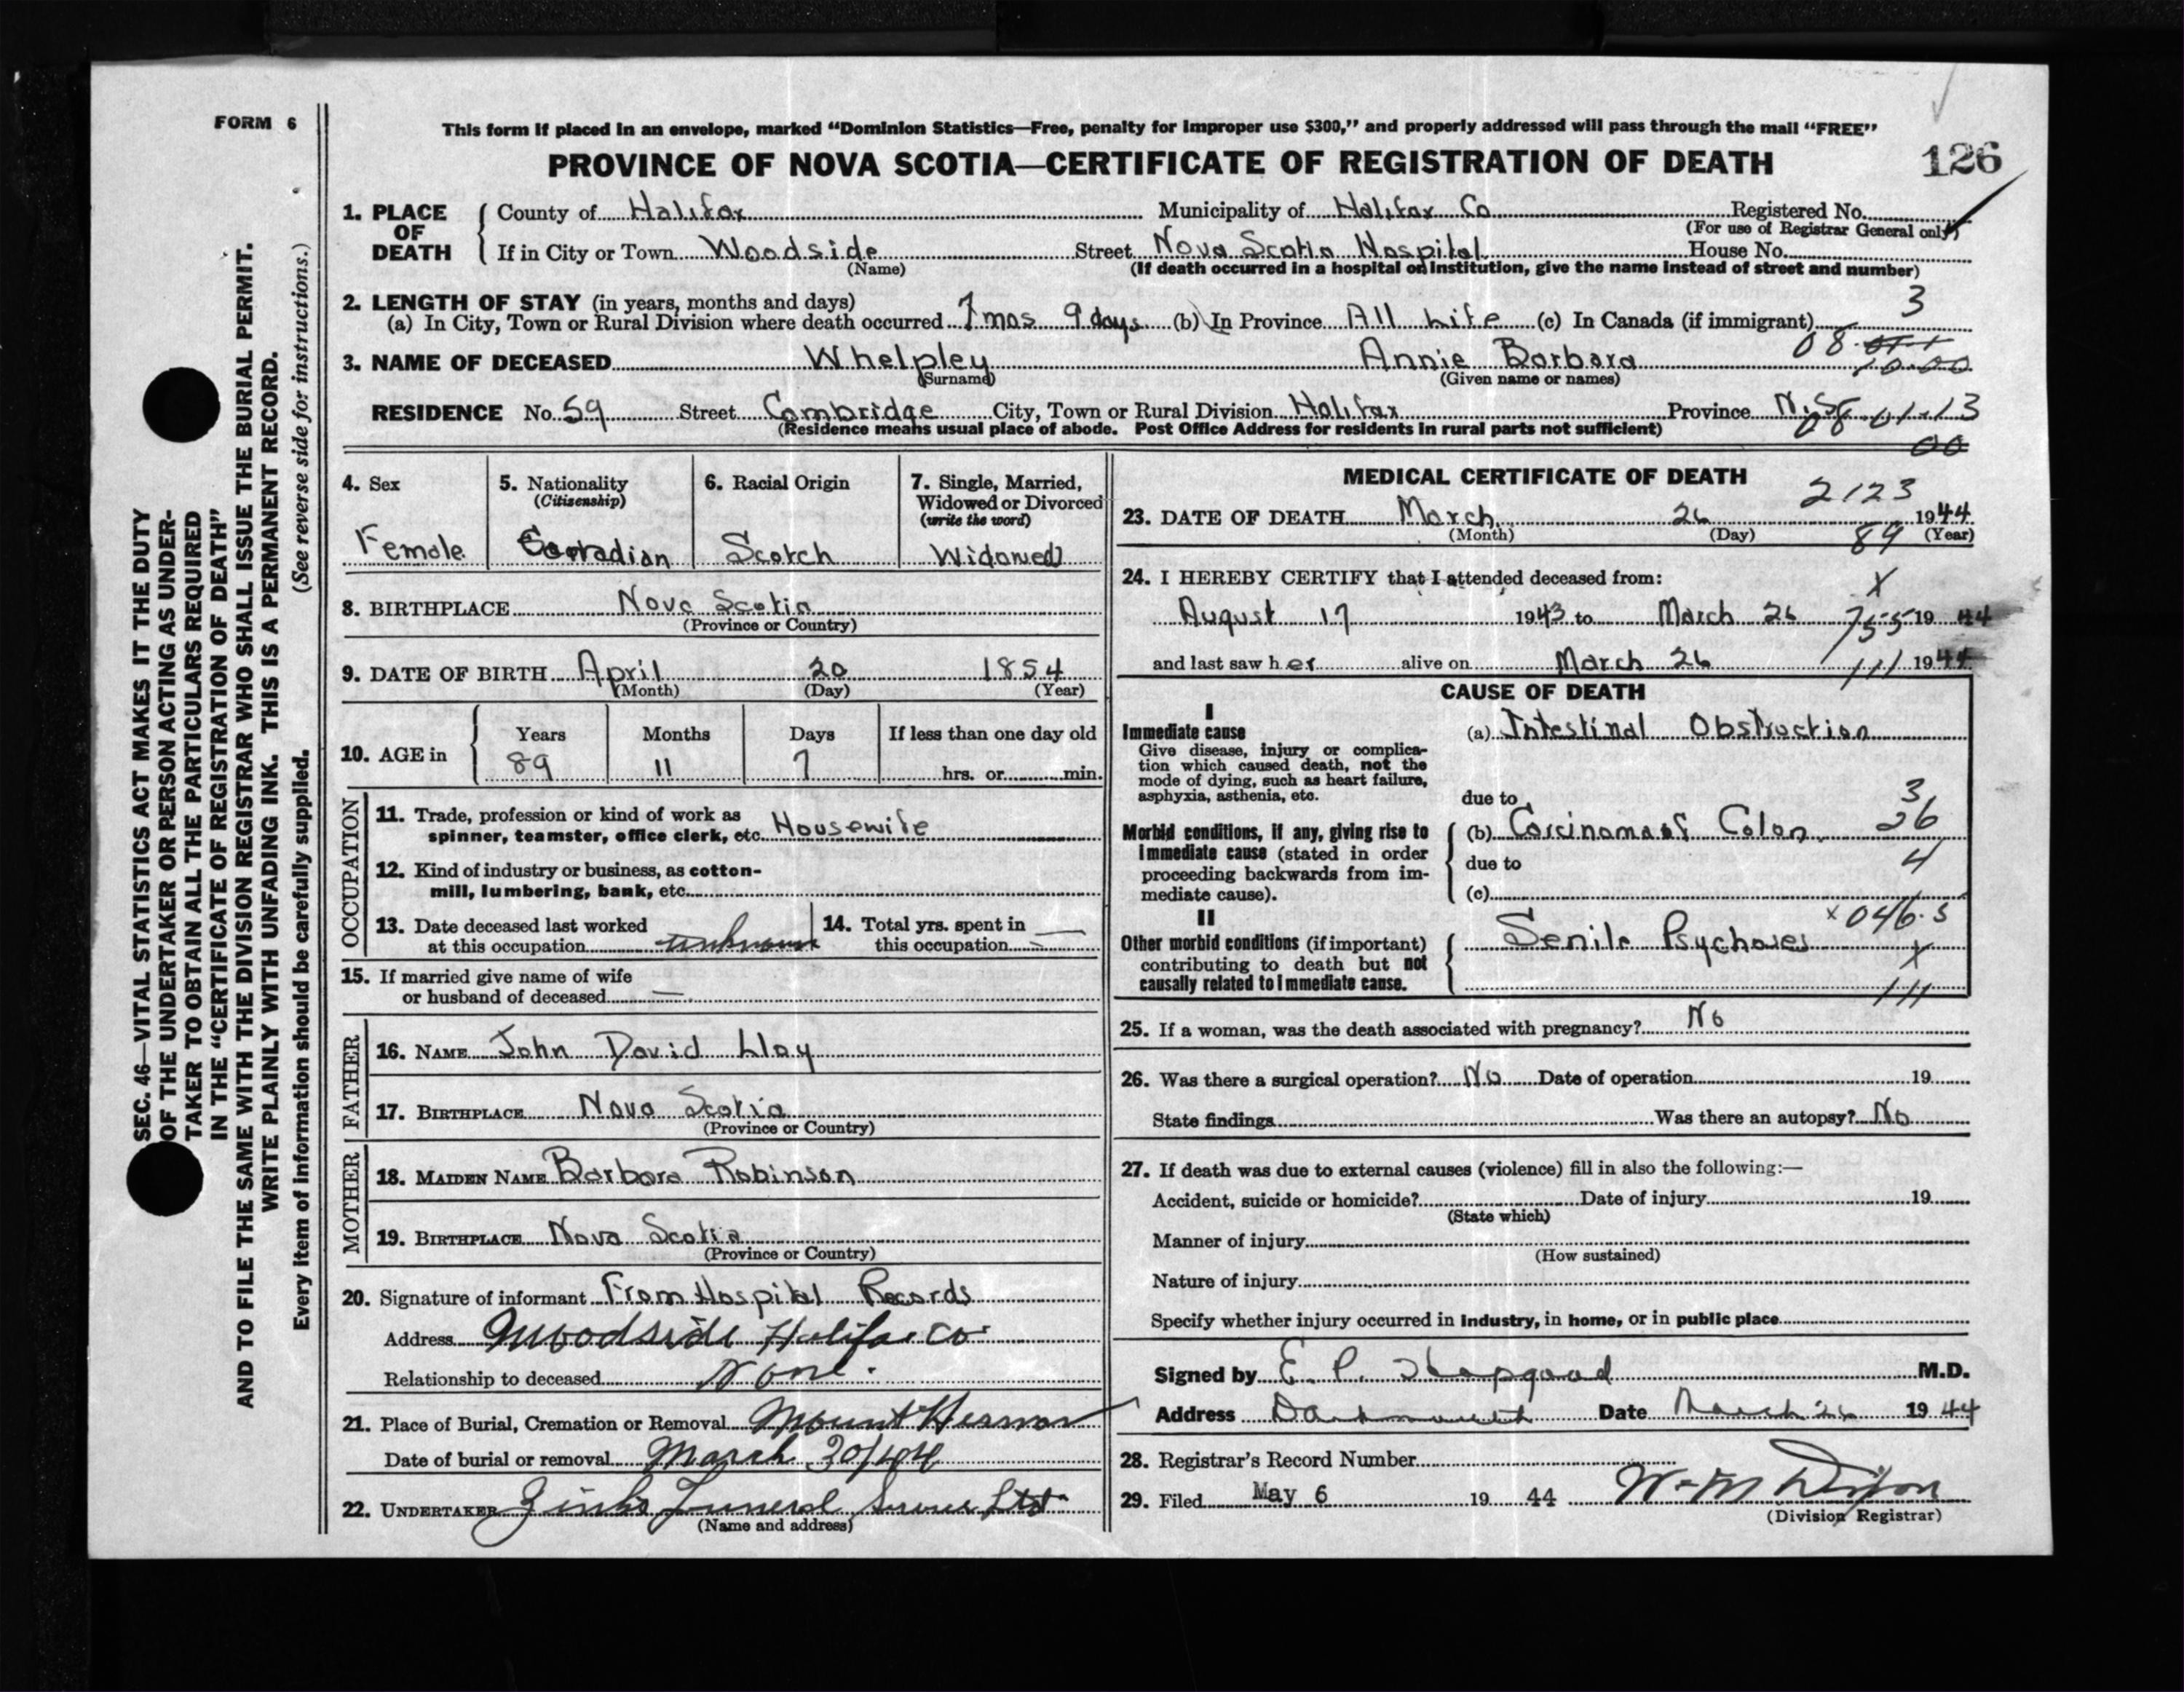 FORM 6
This form if placed in an envelope, marked “Dominion Statistics—Free, penalty for improper use $300,” and properly addressed will pass through the mail “FREE”
PROVINCE OF NOVA SCOTIA—CERTIFICATE OF REGISTRATION OF DEATH
126
1. PLACE OF DEATH County of Halifax Municipality of Halifax Co Registered No.
(For use of Registrar General only)
If in City or Town Woodside Street Nova Scotia Hospital House No.
(Name) (If death occurred in a hospital or institution, give the name instead of street and number)
2. LENGTH OF STAY (in years, months and days) 3
(a) In City, Town or Rural Division where death occurred 7 mos 9 days (b) In Province All Life (c) In Canada (if immigrant)
3. NAME OF DECEASED Whelpley Annie Barbara 08
(Surname) (Given name or names) 10.00
RESIDENCE No. 59 Street Cambridge City, Town or Rural Division Halifax Province N.S. 08.01.13
(Residence means usual place of abode. Post Office Address for residents in rural parts not sufficient)
00
4. Sex
Female
5. Nationality
(Citizenship)
Canadian
6. Racial Origin
Scotch
7. Single, Married,
Widowed or Divorced
(write the word)
Widowed
8. BIRTHPLACE Nova Scotia
(Province or Country)
9. DATE OF BIRTH April 20 1854
(Month) (Day) (Year)
10. AGE in Years Months Days If less than one day old
89 11 7 hrs. or min.
OCCUPATION
11. Trade, profession or kind of work as
spinner, teamster, office clerk, etc. Housewife
12. Kind of industry or business, as cotton-
mill, lumbering, bank, etc.
13. Date deceased last worked
at this occupation unknown
14. Total yrs. spent in
this occupation —
15. If married give name of wife
or husband of deceased —
FATHER
16. NAME John David Llay
17. BIRTHPLACE Nova Scotia
(Province or Country)
MOTHER
18. MAIDEN NAME Barbara Robinson
19. BIRTHPLACE Nova Scotia
(Province or Country)
20. Signature of informant From Hospital Records
Address Woodside Halifax Co.
Relationship to deceased None.
21. Place of Burial, Cremation or Removal Mount Hermon
Date of burial or removal March 30/44
22. UNDERTAKER Zinks Funeral Service Ltd
(Name and address)
MEDICAL CERTIFICATE OF DEATH
2123
23. DATE OF DEATH March 26 1944
(Month) (Day) (Year)
89
24. I HEREBY CERTIFY that I attended deceased from:
X
August 17 1943 to March 26 755 1944
and last saw her alive on March 26 111 1944
CAUSE OF DEATH
I
Immediate cause
Give disease, injury or complica-
tion which caused death, not the
mode of dying, such as heart failure,
asphyxia, asthenia, etc.
(a) Intestinal Obstruction
due to 3
Morbid conditions, if any, giving rise to
immediate cause (stated in order
proceeding backwards from im-
mediate cause).
(b) Carcinoma of Colon 26
due to 4
(c)
II
Other morbid conditions (if important)
contributing to death but not
causally related to immediate cause.
x 046.3
Senile Psychoses
X
111
25. If a woman, was the death associated with pregnancy? No
26. Was there a surgical operation? No Date of operation 19
State findings Was there an autopsy? No
27. If death was due to external causes (violence) fill in also the following:—
Accident, suicide or homicide? Date of injury 19
(State which)
Manner of injury
(How sustained)
Nature of injury
Specify whether injury occurred in industry, in home, or in public place
Signed by E. P. Hapgood M.D.
Address Dartmouth Date March 26 1944
28. Registrar's Record Number
29. Filed May 6 19 44 W. M. Dixon
(Division Registrar)
SEC. 46—VITAL STATISTICS ACT MAKES IT THE DUTY
OF THE UNDERTAKER OR PERSON ACTING AS UNDER-
TAKER TO OBTAIN ALL THE PARTICULARS REQUIRED
IN THE “CERTIFICATE OF REGISTRATION OF DEATH”
AND TO FILE THE SAME WITH THE DIVISION REGISTRAR WHO SHALL ISSUE THE BURIAL PERMIT.
WRITE PLAINLY WITH UNFADING INK. THIS IS A PERMANENT RECORD.
Every item of information should be carefully supplied. (See reverse side for instructions.)